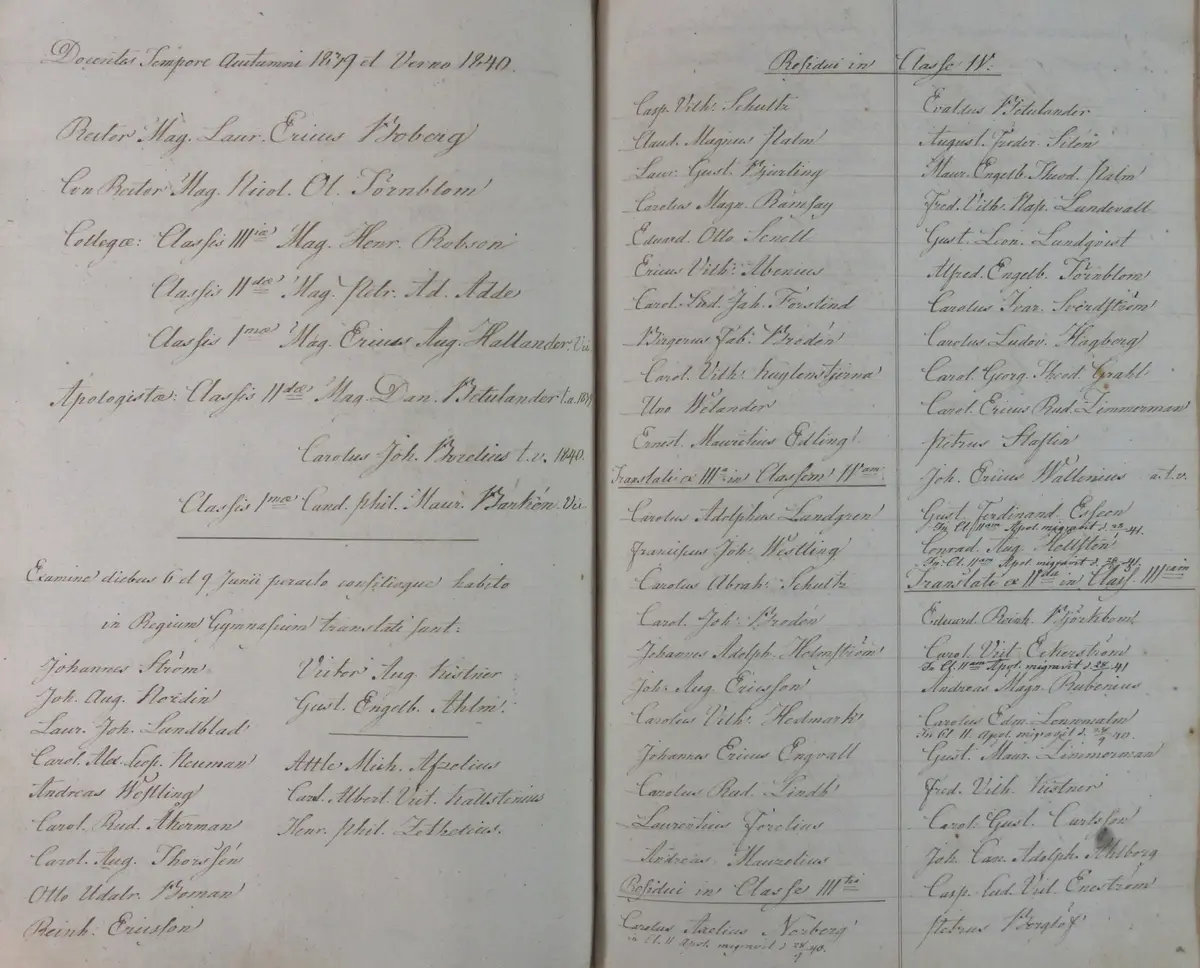 Docentes Tempore Auctumni 1839 et Verno 1840.
Rector Mag. Laur. Ericus Boberg
Con Rector Mag. Nicol. Ol. Törnblom
Collegæ: Classis III:iæ Mag. Henr. Robson
Classis II:dæ Mag. Petr. Ad. Adde
Classis I:mæ Mag. Ericus Aug. Hallander. Vic.
Apologistæ: Classis II:dæ Mag. Dan. Betulander t.a. 1839
Carolus Joh. Borelius t.v. 1840.
Classis I:mæ Cand. phil. Maur. Barkén. Vic
Examine diebus 6 et 9 Junii peracto consilioque habito
in Regium Gymnasium translati sunt:
Johannes Ström
Joh. Aug. Nordin
Laur. Joh. Lundblad
Carol. Alex. Leop. Neuman
Andreas Westling
Carol. Rud. Åkerman
Carol. Aug. Thorssén
Otto Udalr. Boman
Reinh. Ericsson
Victor Aug. Kistner
Gust. Engelb. Ahlm.
Attle Mich. Afzelius
Carl. Albert. Vict. Kallstenius
Henr. phil. Zethelius.
Residui in Classe IV.
Casp. Vilh: Schultz
Claud. Magnus Palm
Laur. Gust. Bjurling
Carolus Magn. Ramsay
Eduard. Otto Snell
Ericus Vilh: Abenius
Carol. Lud. Joh. Forslind
Birgerus Fab: Brodén
Carol. Vilh: Kuylenstjerna
Uno Welander
Ernest. Mauritius Edling
Translati e III:a in Classem IV:am
Carolus Adolphus Lundgren
Franciscus Joh: Westling
Carolus Abrah: Schultz
Carol. Joh: Brodén
Johannes Adolph. Holmström
Joh: Aug. Ericsson
Carolus Vilh: Hedmark
Johannes Ericus Engvall
Carolus Rud. Lindh
Laurentius Forelius
Andreas Mauzelius
Residui in Classe III:tii
Carolus Axelius Norberg
in Cl. II Apol. migravit d. 28/9 40.
Evaldus Betulander
August. Freder. Silén
Maur. Engelb. Theod. Palm
Fred. Vilh. Nap. Lundevall
Gust. Leon. Lundqvist
Alfred. Engelb. Törnblom
Carolus Ivar. Sverdström
Carolus Ludov. Hagberg
Carol. Georg. Theod. Grahl
Carol. Ericus Rud. Zimmerman
Petrus Staflin
Joh. Ericus Wallenius a.t.v.
Gust. Ferdinand. Esseen
In Cl. II:am Apol. migravit d. 28/ 41.
Conrad. Aug. Hollstén
In Cl. II:am Apol. migravit d. 28/ 41.
Translati e II:da in Class. III:iam
Eduard. Reinh. Björkbom
Carol. Vict. Eckerström
In Cl. II:am Apol. migravit d. 28/ 41
Andreas Magn. Rubenius
Carolus Edm. Lennmalm
In Cl. II. Apol. migravit d. 28/9 40.
Gust. Maur. Zimmerman
Fred. Vilh. Kistner
Carol. Gust. Carlsson
Joh. Can. Adolph. Ahlborg
Casp. Lud. Vict. Eneström
Petrus Berglöf